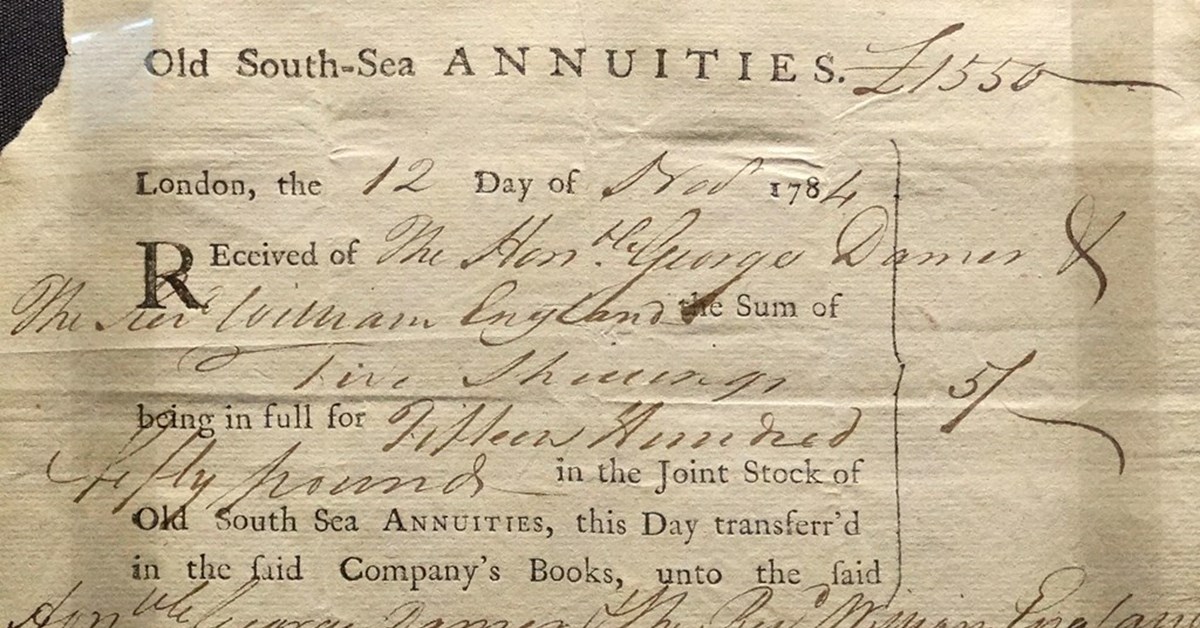 Old South-Sea ANNUITIES. £1550
London, the 12 Day of Nov 1784
REceived of The Honble. George Damer &
The Revd William England the Sum of
Five Shillings 5/
being in full for Fifteen Hundred
fifty pounds in the Joint Stock of
Old South Sea ANNUITIES, this Day transferr'd
in the ſaid Company's Books, unto the ſaid
Honble George Damer & The Revd William England